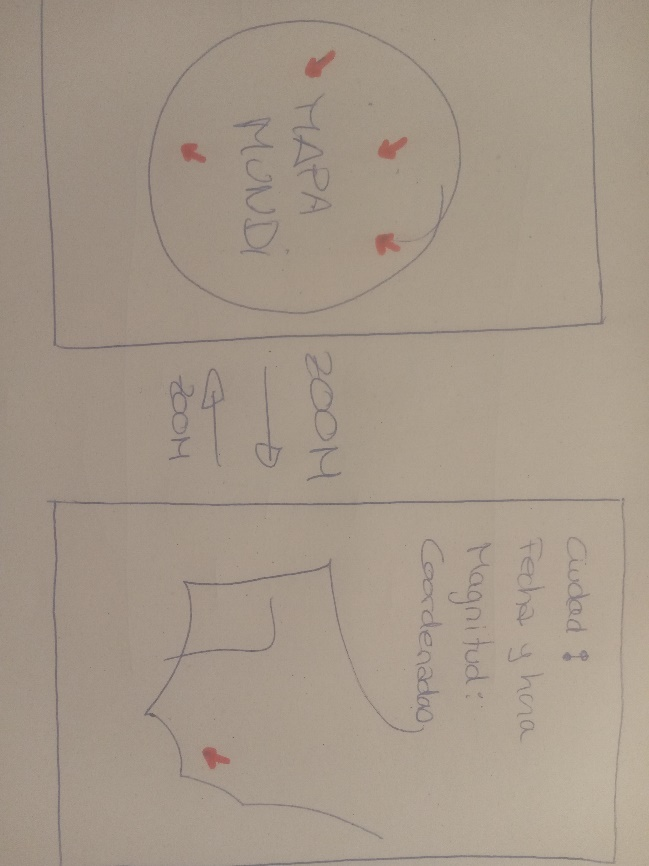 MAPA
MUNDI
ZOOM
ZOOM
Ciudad:
Fecha y hora
Magnitud:
Coordenadas